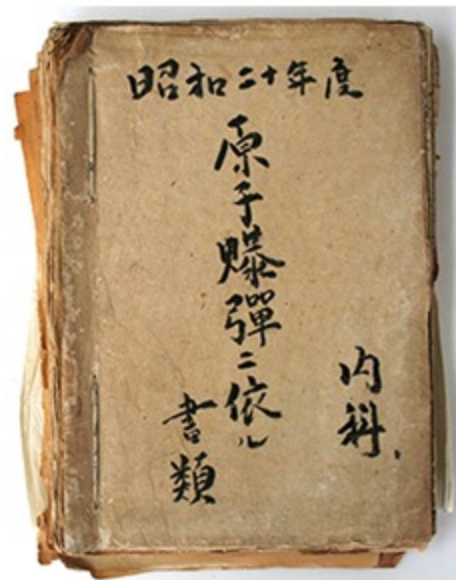 昭和二十年度
原子爆彈ニ依ル
書類
内科、